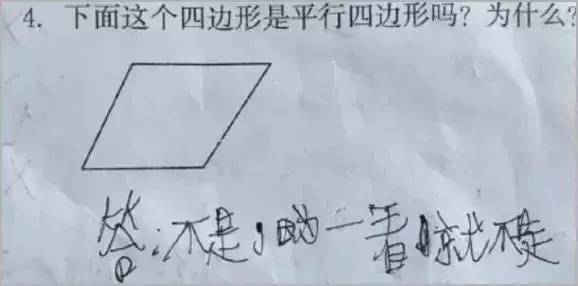 4. 下面这个四边形是平行四边形吗？为什么？
答：不是，因为一看就不是